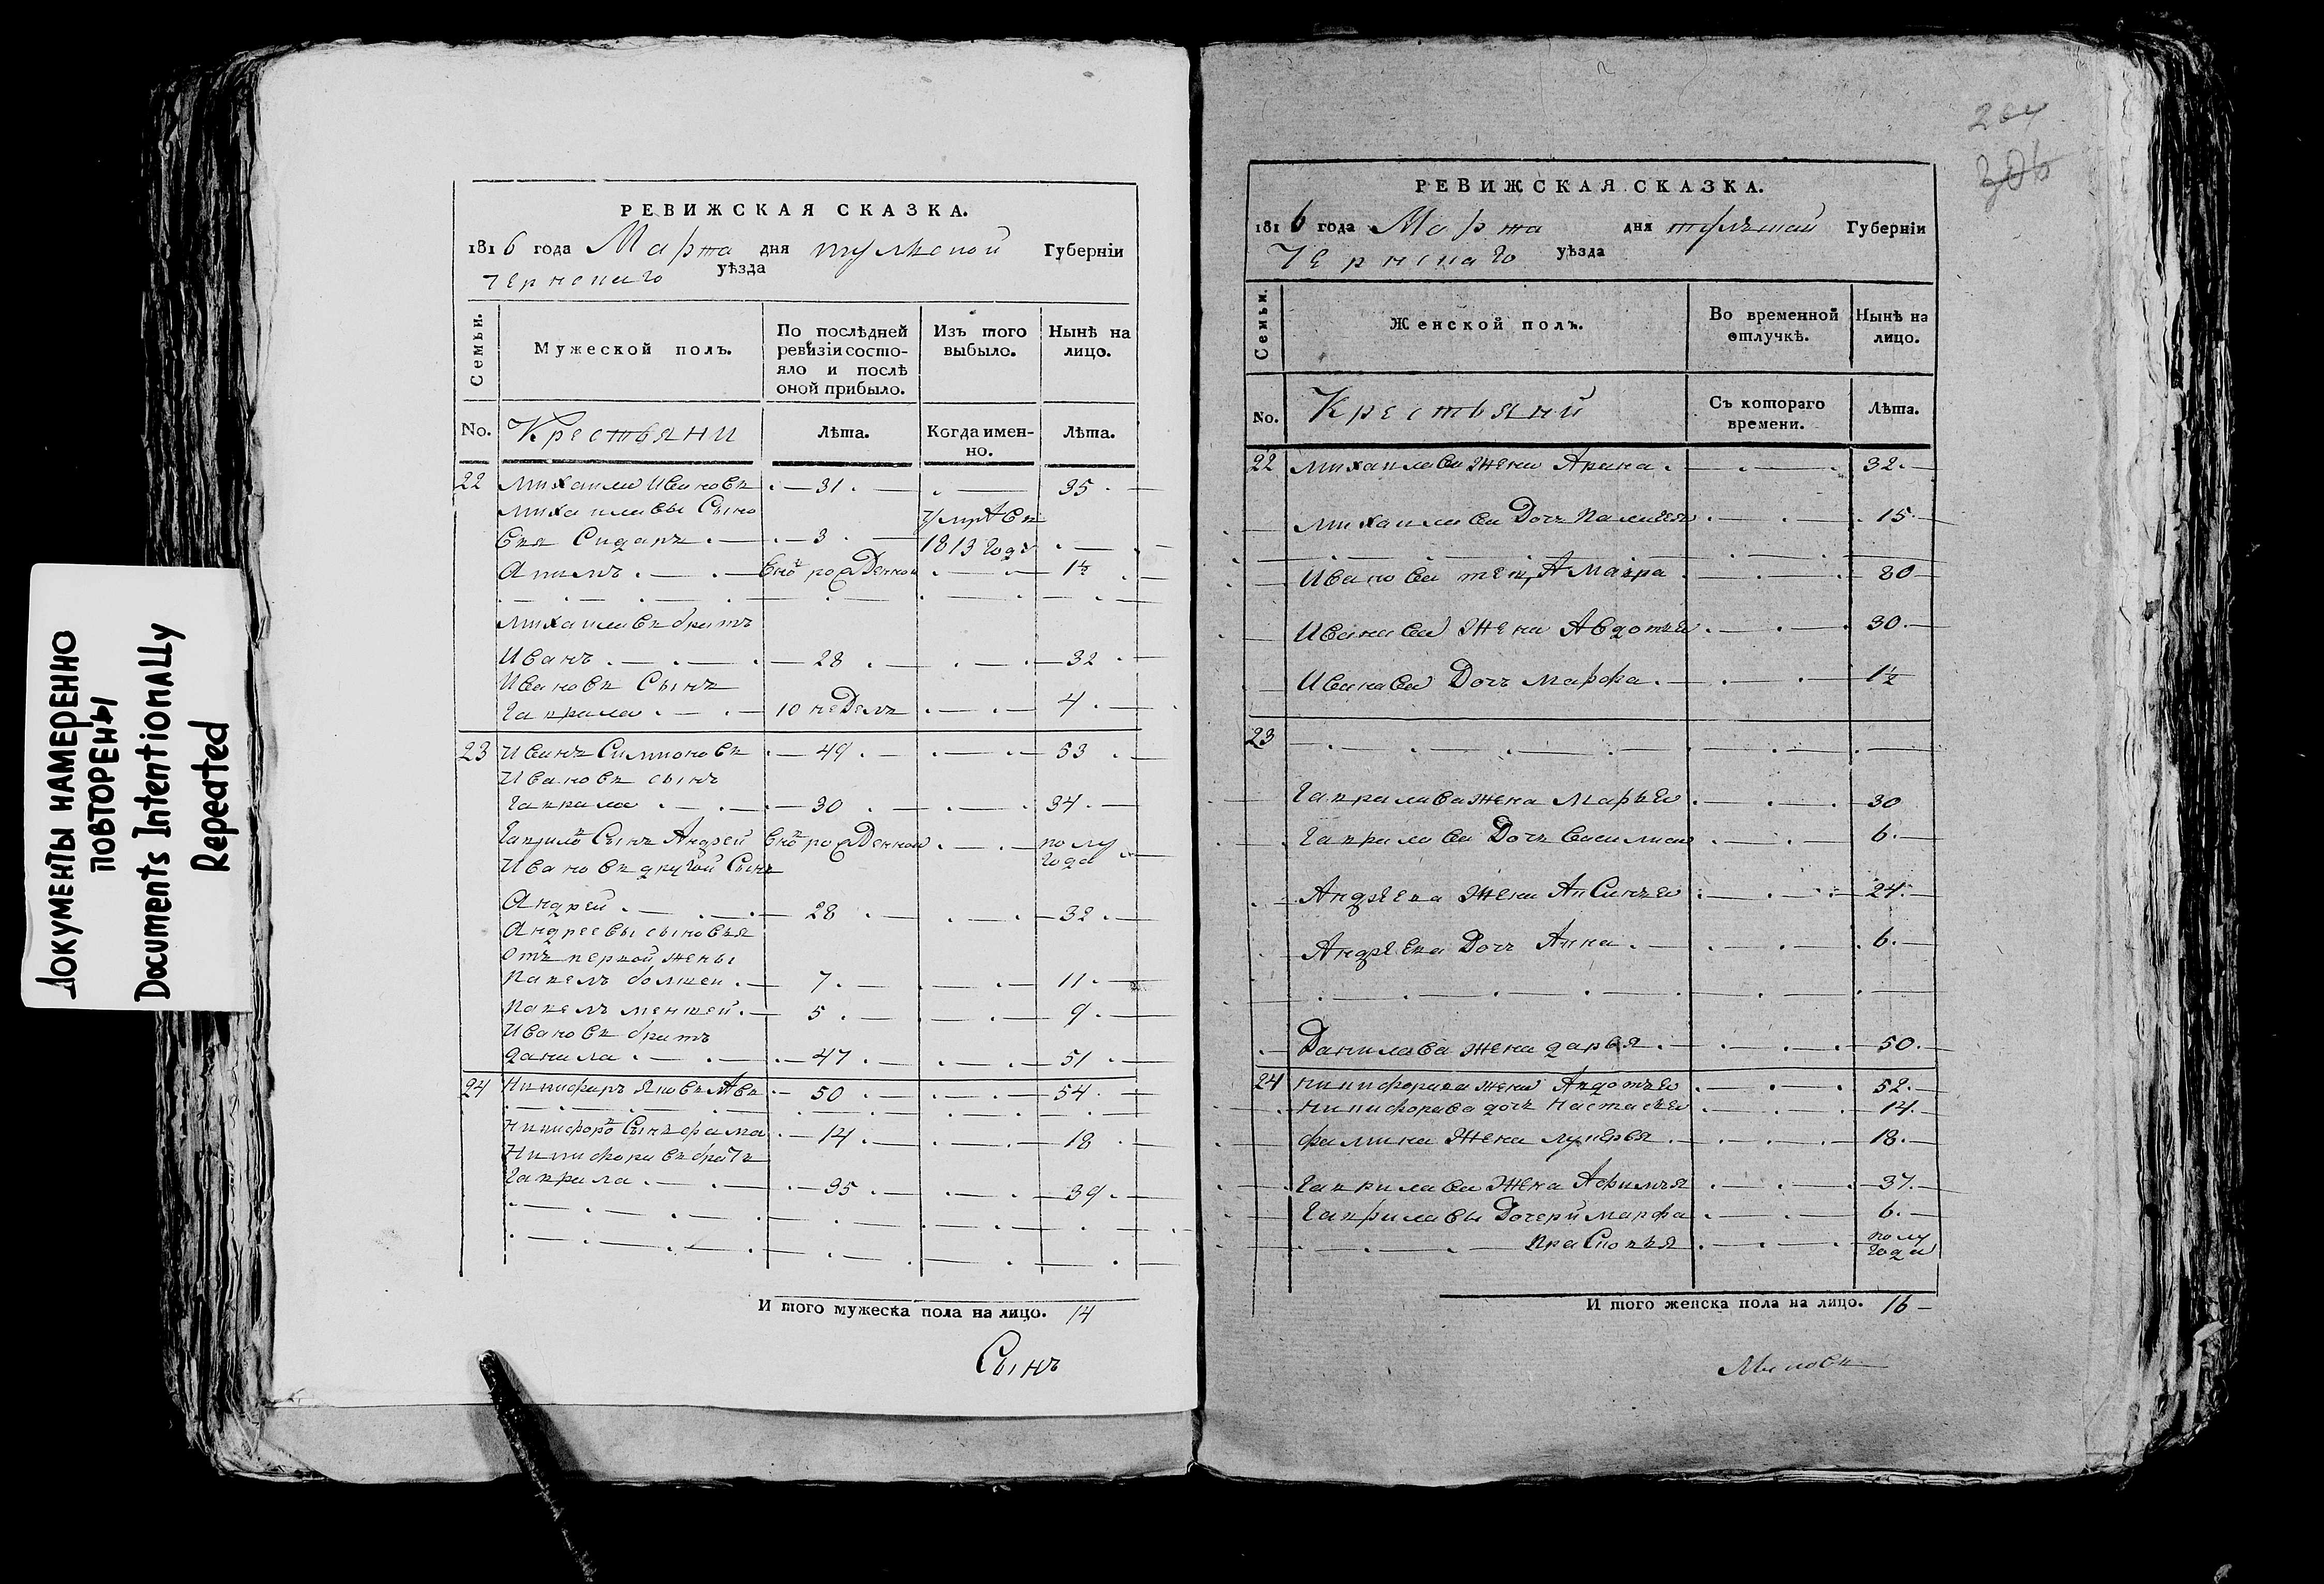 ДОКУМЕНТЫ НАМЕРЕННО
ПОВТОРЕНЫ
Documents Intentionally
Repeated
РЕВИЖСКАЯ СКАЗКА.
1816 года Марта дня тулской Губерніи
Чернскаго уѣзда
Семьи.
Мужеской полъ.
По послѣдней ревизіи состояло и послѣ оной прибыло.
Изъ того выбыло.
Нынѣ на лицо.
No. Крестьяни Лѣта. Когда именно. Лѣта.
22 Михаила Ивановъ 31 35
Михаилавы Сыно
Вья Сидаръ 3 1813 году
Акимъ 1½
Михаилавъ братъ
Иванъ 28 32
Ивановъ Сынъ
Гаврила 10 неделъ 4
23 Иванъ Симионовъ 49 53
Ивановъ сынъ
Гаврила 30 34
Гаврилв Сынъ Андрей вновь рожденной полу
года
Ивановъ другой Сынъ
Андрей 28 32
Андреевы сыновья
Отъ первой жены
Павелъ болшей 7 11
Павелъ меншей 5 9
Ивановъ братъ
данила 47 51
24 Никифаръ 50 54
Никифорв Сынъ фама 14 18
Никифоравъ братъ
Гаврила 35 39
И того мужеска пола на лицо. 14
Сынъ
204
306
РЕВИЖСКАЯ СКАЗКА.
1816 года Марта дня тулскай Губерніи
Чернскаго уѣзда
Семьи.
Женской полъ.
Во временной отлучкѣ.
Нынѣ на лицо.
No. Крестьяни Съ котораго времени. Лѣта.
22 Михаилава жена Арина 32
Михаилава Дочь Палагея 15
Иванова Мавра 80
Иванава жена Авдотья 30
Иванава Дочь Марфа 1½
23
Гаврилава жена Марья 30
Гаврилава Дочь Василиса 6
Андреева жена Аксинья 24
Андреева Дочь Анна 6
Данилава жена дарья 50
24 Никифорава жена Авдотья 52
Никифорава дочь Настасья 14
фамина жена лукерья 18
Гаврилава жена Афимья 37
Гаврилавы Дочери марфа 6
Прасковья полу
года
И того женска пола на лицо. 16